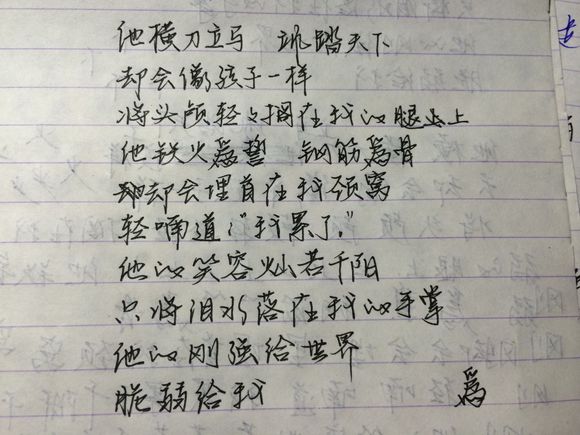 他横刀立马 跳踏天下
却会像孩子一样
将头颅轻轻搁在我的腿上
他铁火為誓 钢筋為骨
却会埋首在我颈窝
轻喃道："我累了。"
他的笑容灿若千阳
只将泪水落在我的手掌
他的刚强给世界
脆弱给我
為